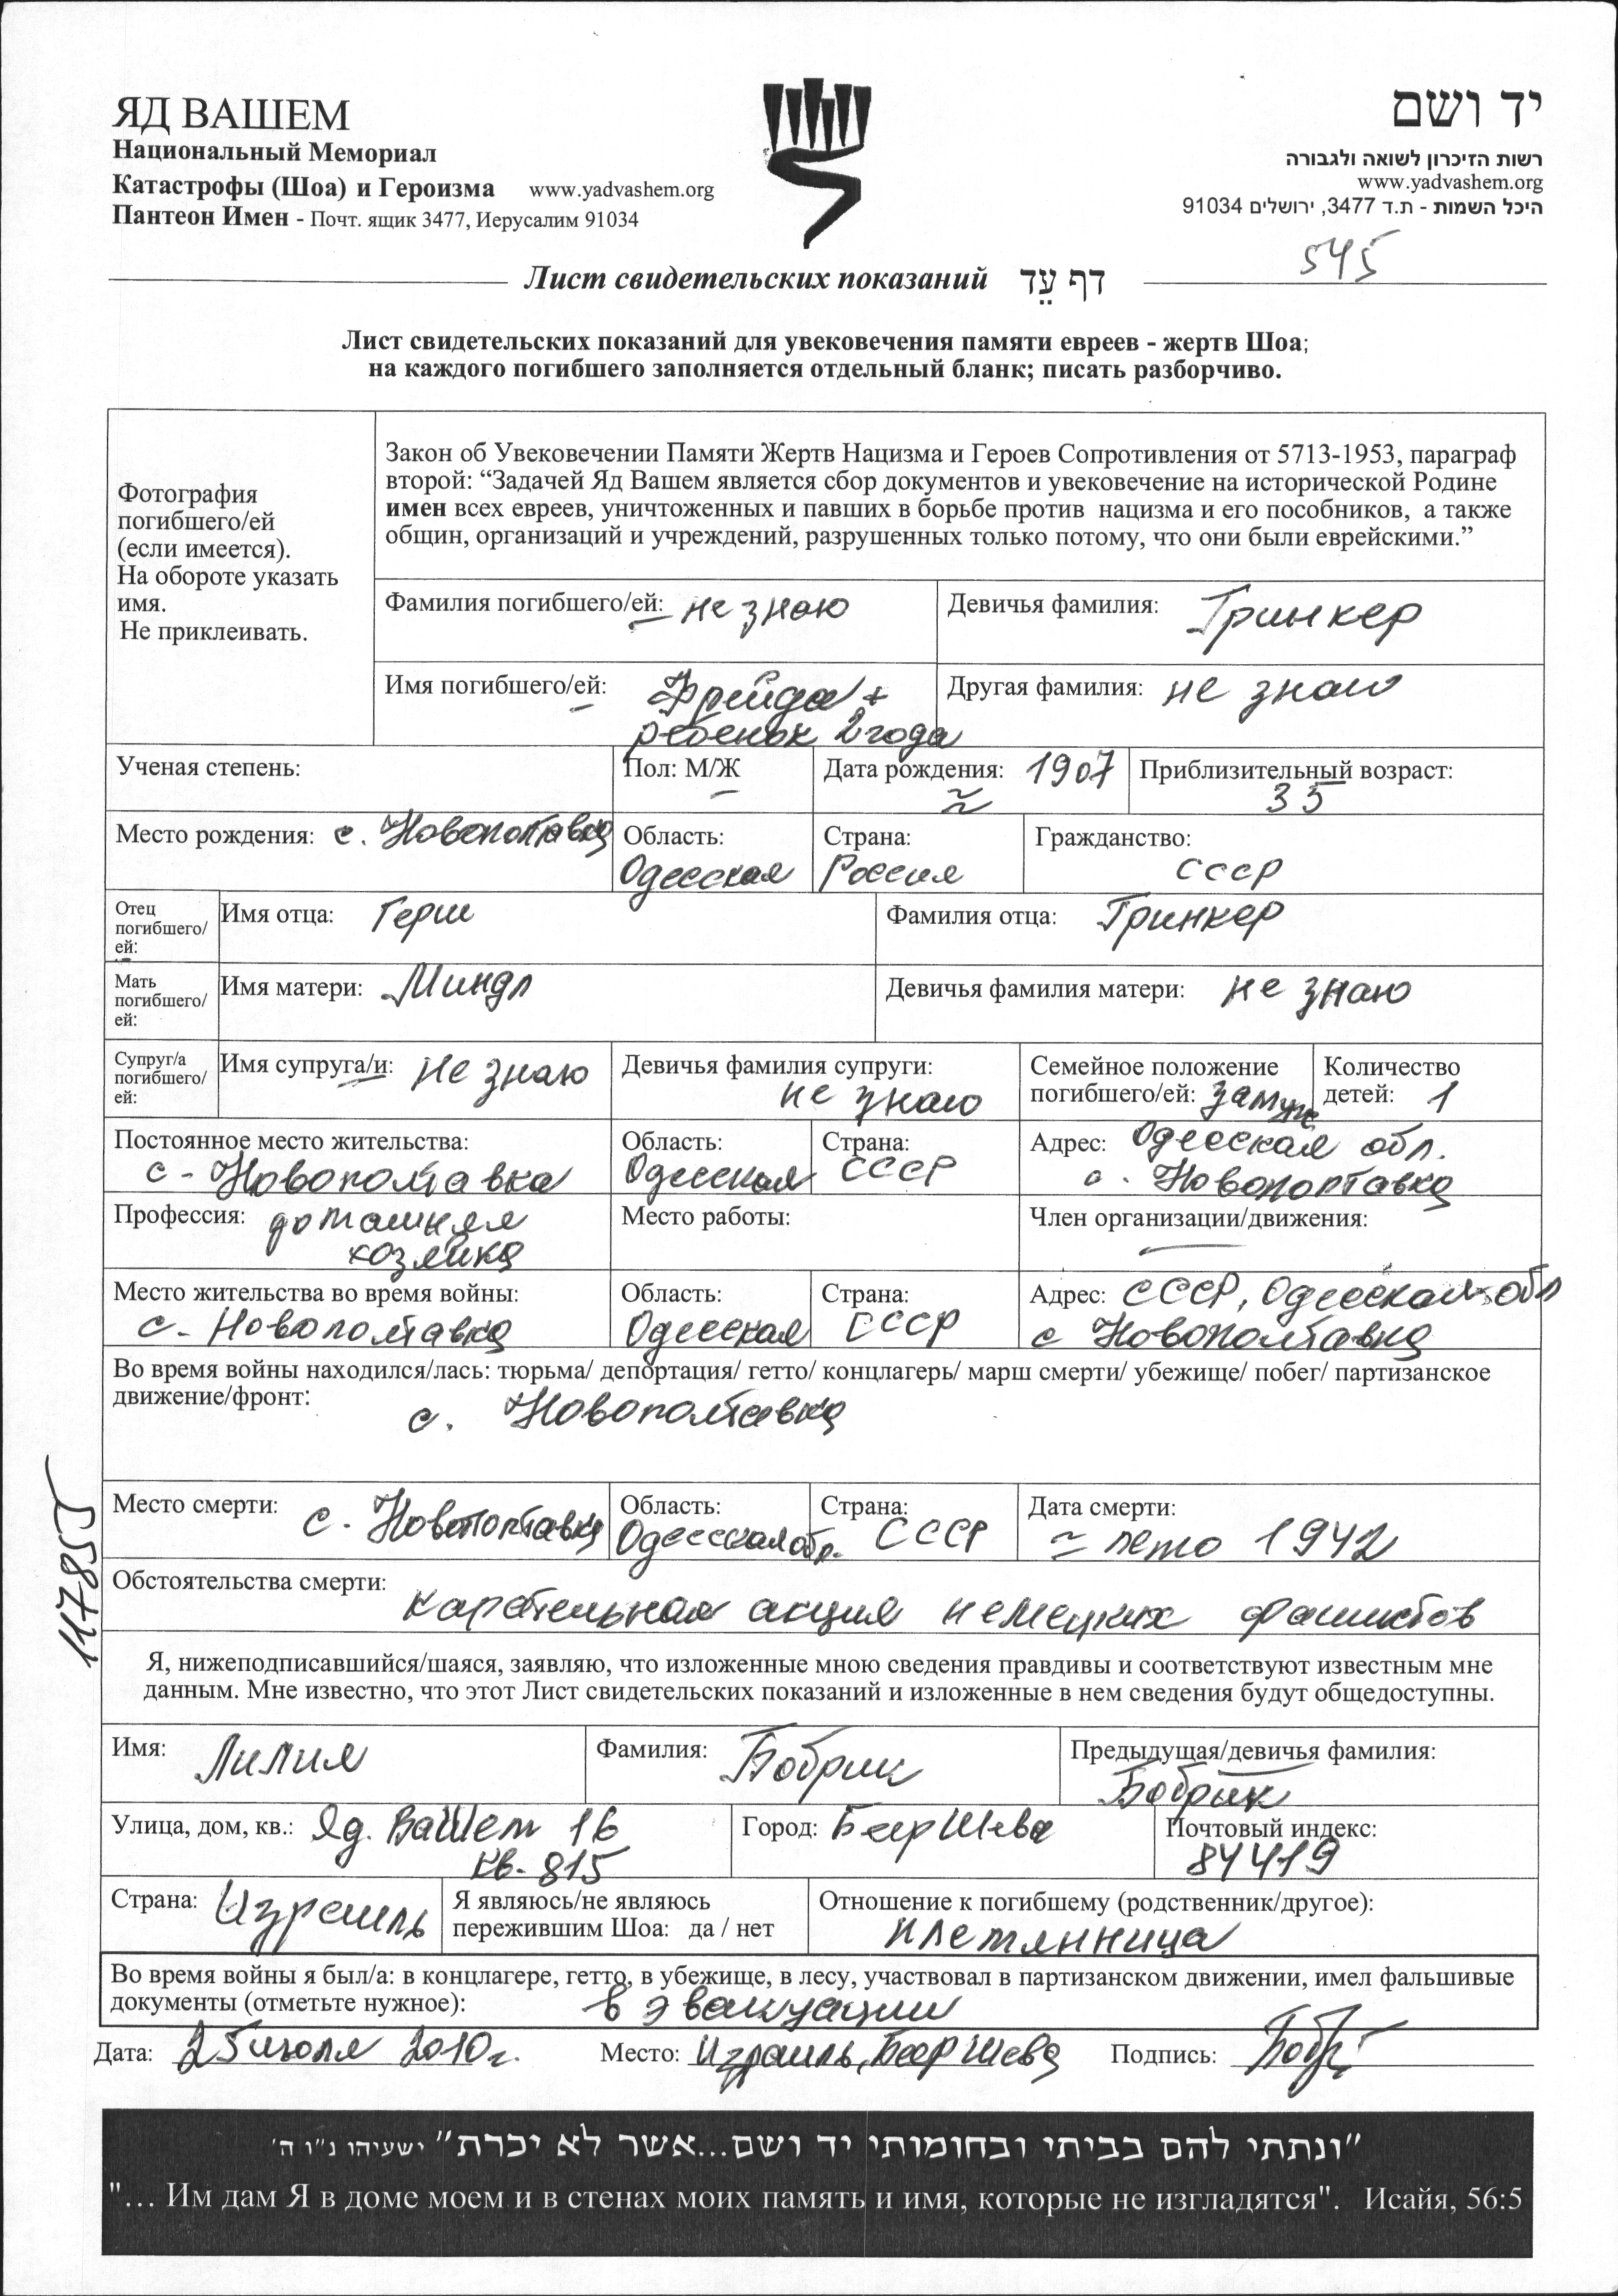 ЯД ВАШЕМ
Национальный Мемориал
Катастрофы (Шоа) и Героизма www.yadvashem.org
Пантеон Имен - Почт. ящик 3477, Иерусалим 91034
יד ושם
רשות הזיכרון לשואה ולגבורה
www.yadvashem.org
היכל השמות - ת.ד 3477, ירושלים 91034
545
Лист свидетельских показаний דף עֵד
Лист свидетельских показаний для увековечения памяти евреев - жертв Шоа;
на каждого погибшего заполняется отдельный бланк; писать разборчиво.
Фотография
погибшего/ей
(если имеется).
На обороте указать
имя.
Не приклеивать.
Закон об Увековечении Памяти Жертв Нацизма и Героев Сопротивления от 5713-1953, параграф
второй: “Задачей Яд Вашем является сбор документов и увековечение на исторической Родине
имен всех евреев, уничтоженных и павших в борьбе против нацизма и его пособников, а также
общин, организаций и учреждений, разрушенных только потому, что они были еврейскими.”
Фамилия погибшего/ей: не знаю
Девичья фамилия: Гринкер
Имя погибшего/ей: Фрейда +
ребенок 2 года
Другая фамилия: не знаю
Ученая степень:
Пол: М/Ж
Дата рождения: 1907
≈
Приблизительный возраст:
35
Место рождения: с. Новополтавка
Область:
Одесская
Страна:
Россия
Гражданство:
СССР
Отец
погибшего/
ей:
Имя отца: Герш
Фамилия отца: Гринкер
Мать
погибшего/
ей:
Имя матери: Миндл
Девичья фамилия матери: не знаю
Супруг/а
погибшего/
ей:
Имя супруга/и: не знаю
Девичья фамилия супруги:
не знаю
Семейное положение
погибшего/ей: замуж
Количество
детей: 1
Постоянное место жительства:
с. Новополтавка
Область:
Одесская
Страна:
СССР
Адрес: Одесская обл.
с. Новополтавка
Профессия: домашняя
хозяйка
Место работы:
Член организации/движения:
Место жительства во время войны:
с. Новополтавка
Область:
Одесская
Страна:
СССР
Адрес: СССР, Одесская обл
с Новополтавка
Во время войны находился/лась: тюрьма/ депортация/ гетто/ концлагерь/ марш смерти/ убежище/ побег/ партизанское
движение/фронт:
с. Новополтавка
Место смерти: с. Новополтавка
Область:
Одесская обл.
Страна:
СССР
Дата смерти:
≈ лето 1942
Обстоятельства смерти:
карательная акция немецких фашистов
Я, нижеподписавшийся/шаяся, заявляю, что изложенные мною сведения правдивы и соответствуют известным мне
данным. Мне известно, что этот Лист свидетельских показаний и изложенные в нем сведения будут общедоступны.
Имя: Лилия
Фамилия: Бобрик
Предыдущая/девичья фамилия:
Бобрик
Улица, дом, кв.: Яд. Вашем 16
кв. 815
Город: Беер Шева
Почтовый индекс:
84419
Страна: Израиль
Я являюсь/не являюсь
пережившим Шоа: да / нет
Отношение к погибшему (родственник/другое):
племянница
Во время войны я был/а: в концлагере, гетто, в убежище, в лесу, участвовал в партизанском движении, имел фальшивые
документы (отметьте нужное): в эвакуации
Дата: 25 июля 2010г. Место: Израиль, Беер Шева Подпись:
117855
"ונתתי להם בביתי ובחומותי יד ושם...אשר לא יכרת" ישעיהו נ"ו ה'
"... Им дам Я в доме моем и в стенах моих память и имя, которые не изгладятся". Исайя, 56:5